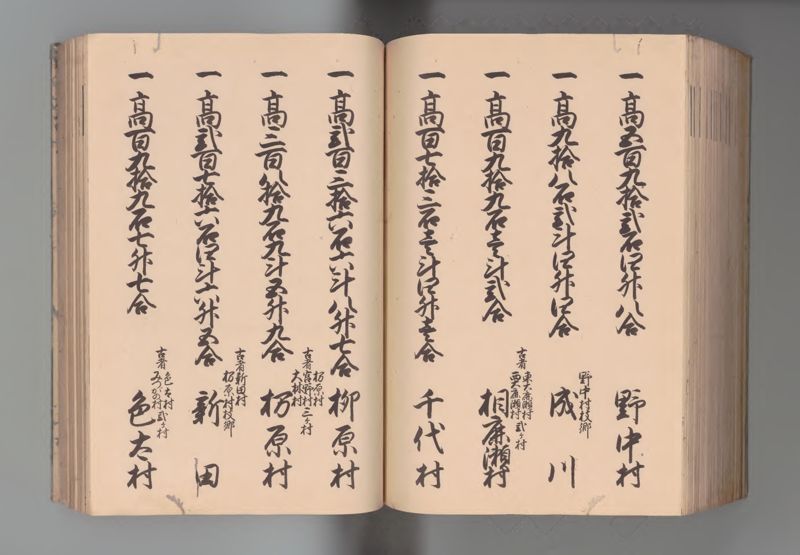 一 高五百九拾弐石四升八合 野中村
一 高九拾八石弐斗四升四合 野中村枝郷 成川
一 高百九拾九石壱斗弐合 古者 東相鹿瀬村 西相鹿瀬村 弐ヶ村 相鹿瀬村
一 高百七拾三石壱斗四升壱合 千代村
一 高弐百三拾六石六斗八升七合 柳原村
一 高三百八拾九石九斗五升九合 古者 栃原村 宮野村 大林村 三ヶ村 栃原村
一 高弐百七拾六石四斗六升五合 古者新田村 栃原村枝郷 新田
一 高百九拾九石七升七合 古者 色太村 弐ヶ村 色太村